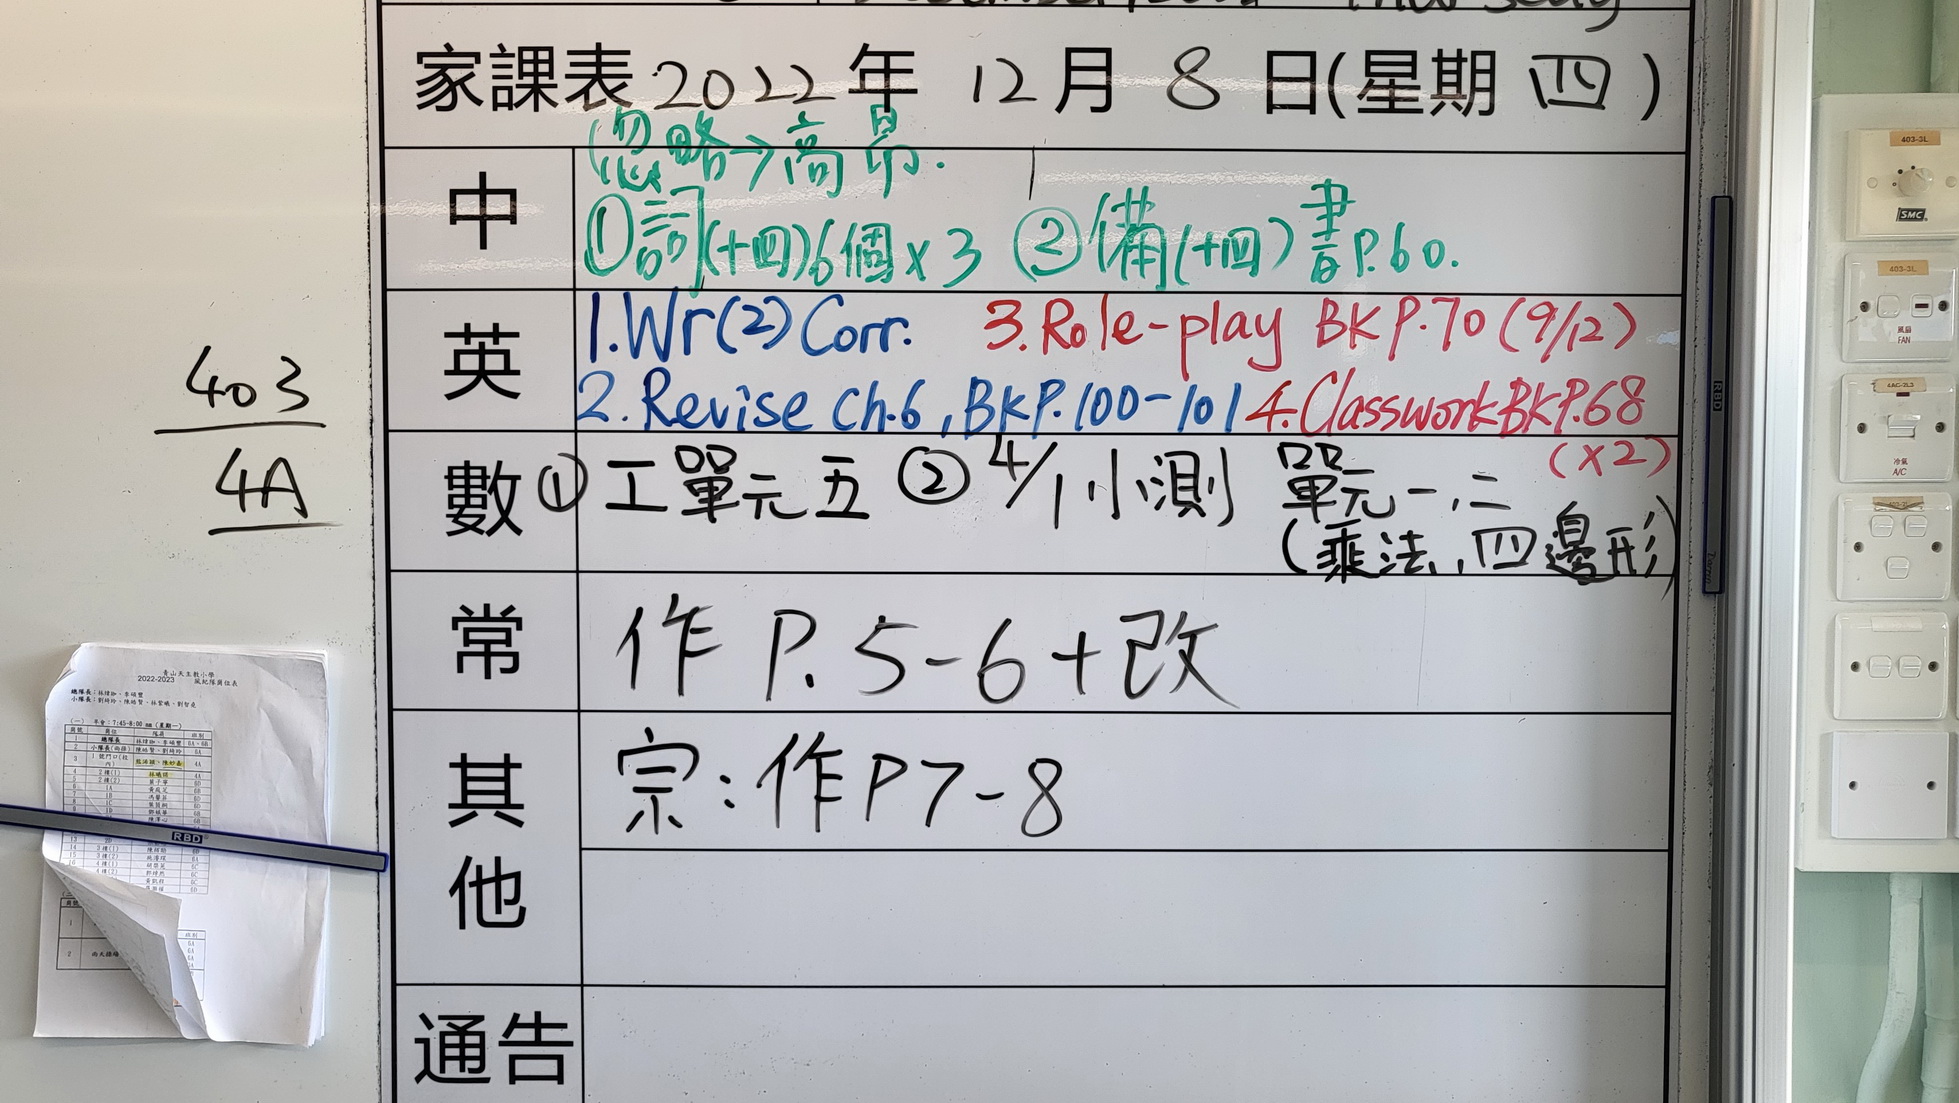 家課表 2022年 12月 8日(星期四)
中
(忽略→高昂.
①詞(十四)6個×3 ②備(十四)書P.60.
英
1.Wr(2) Corr. 3.Role-play BK P.70 (9/12)
2.Revise Ch.6, BK P.100-101 4.Classwork BK P.68
(×2)
數
①工單元五 ②4/1小測 單元一,二
(乘法,四邊形)
常
作 P. 5-6+改
其他
宗:作P7-8
通告
403
4A
青山天主教小學
2022-2023 風紀隊崗位表
RBD
RBD
403-3L
SMC
403-3L
風扇
FAN
4AC-2L3
冷氣
A/C